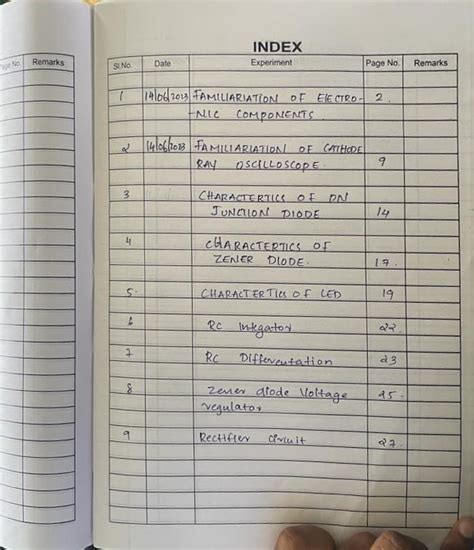 Page No. Remarks
INDEX
Sl.No. Date Experiment Page No. Remarks
1 14/06/2023 FAMILIARIATION OF ELECTRO- 2.
-NIC COMPONENTS.
2 14/06/2023 FAMILIARIATION OF CATHODE
RAY OSCILLOSCOPE. 9
3 CHARACTERTICS OF PN
JUNCTION DIODE 14
4 CHARACTERTICS OF
ZENER DIODE. 17.
5. CHARACTERTICS OF LED 19
6 RC Integator 22.
7 RC Differentation 23
8 Zener diode Voltage 25.
regulator
9 Rectifier circuit 27.